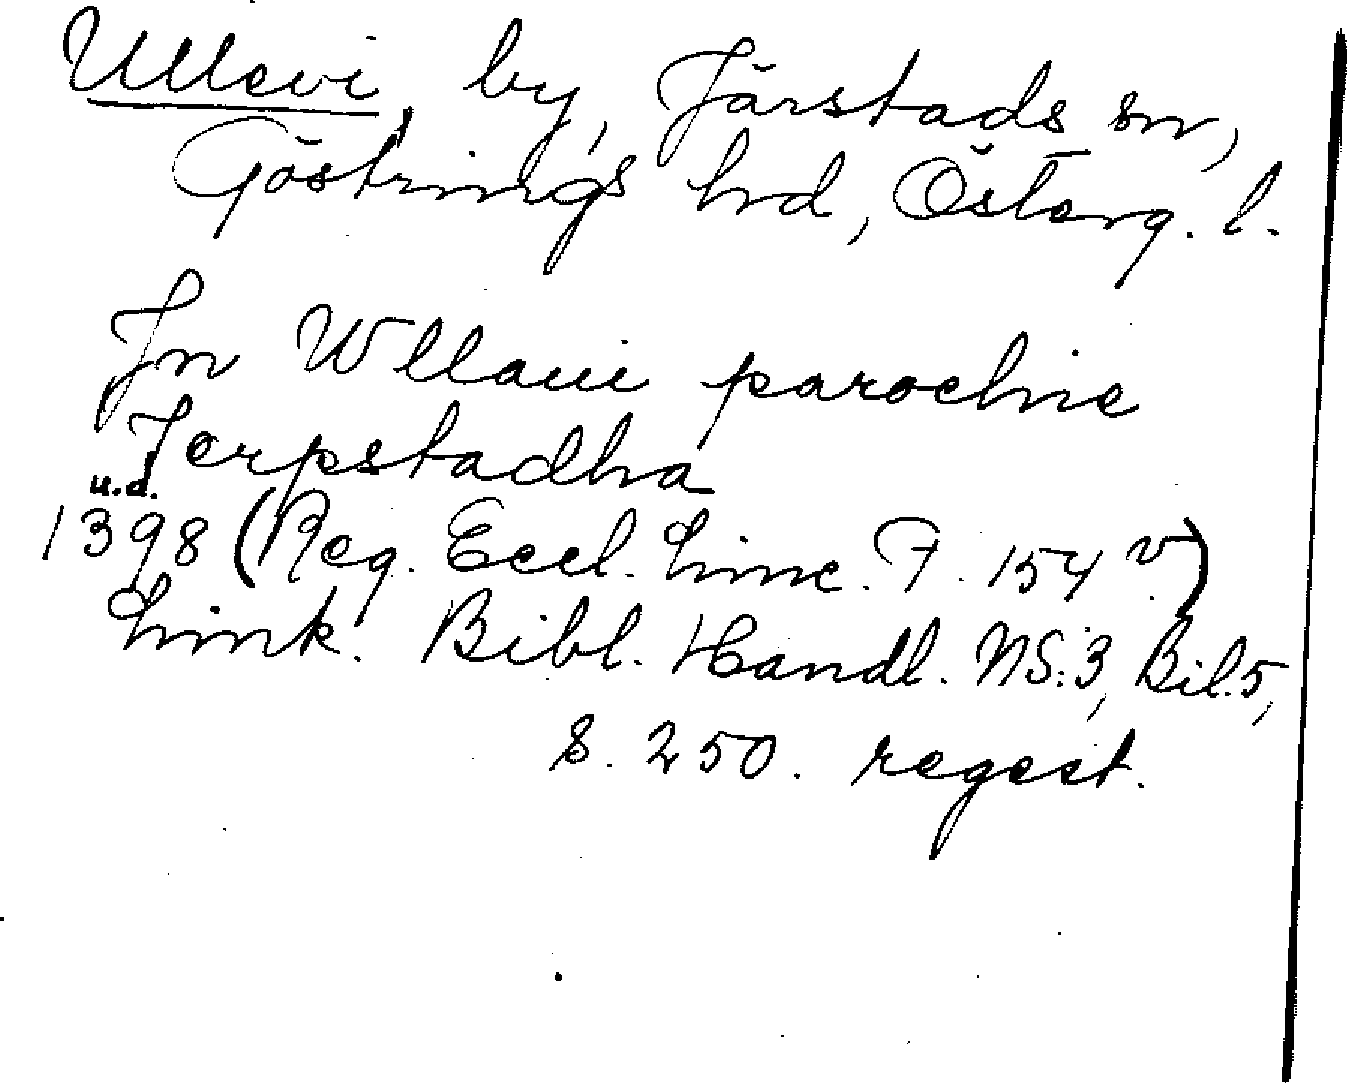 Ullevi, by, Järstads sn,
Göstrings hrd, Österg. l.
In Wllaui parochie
Jerpstadha
u.d.
1398 (Reg. Eccl. Linc. F. 154 v.)
Link. Bibl. Handl. NS:3, Bil.5,
s. 250. regest.